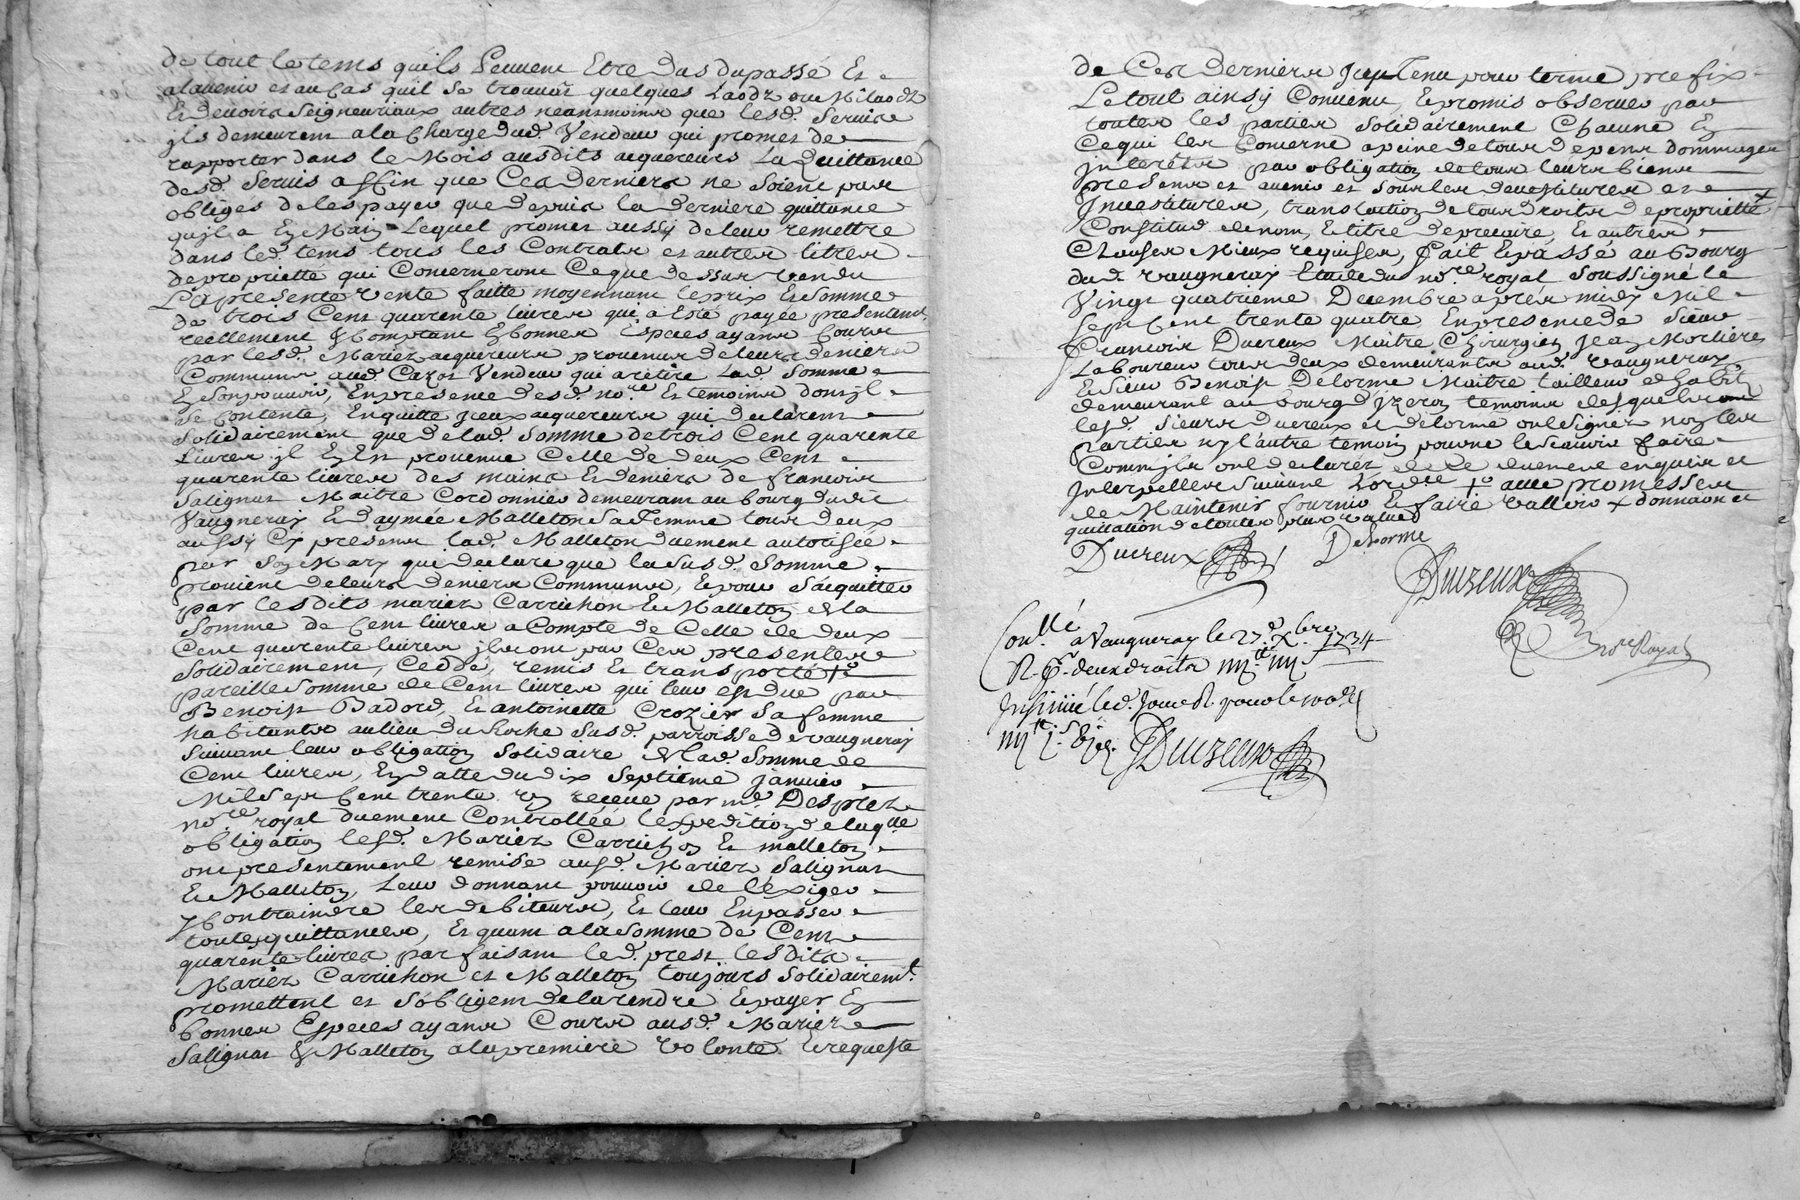 de tout le tems quils Peuvent Etre dus du passé Et
a lavenir et au cas quil se trouvat quelques Laodz ou Milaodz
Et devoirs Seigneuriaux autres neantmoins que lesd. Servis
jls demeurent a la Charge dud. Vendeur qui promet de
rapporter dans le Mois ausdits acquereurs La Quittance
desd. Servis affin que Ces derniers ne Soient pas
obligés de les payer que depuis la derniere quittance
quil a En Main Lequel promet aussy de leur remettre
dans led. tems tous les Contrats et autres titres
de propriette qui Concerneront Ce que dessus vendu
La presente vente faitte moyennant le prix Et Somme
de trois Cent quarente livres qui a Esté payée presentemt
reellement & Comptant En bonnes Especes ayant Cours
par lesd. Mariez acquereurs provenus de leurs deniers
Communs aud. Cazot Vendeur qui a retiré Lad. Somme
En Son pouvoir, En presence desd. nore. Et temoins dont jl
Se Contente, En quitte jceux acquereurs qui declarent
Solidairement que de lad. Somme de trois Cent quarente
Livres jl En Est provenue Celle de deux Cent
quarente livres des mains Et deniers de francois
Salignat Maitre Cordonnier demeurant au bourg dudit
Vaugneray Et d'aymée Malleton Sa Femme tous deux
aussy Cy presents lad. Malleton duement autorisée
par Son Mary qui declare que la Susd. Somme
provient de leurs deniers Communs, Et pour S'acquitter
par lesdits mariez Carrichon Et Malleton de la
Somme de Cent livres a Compte de Celle de deux
Cent quarente livres jls ont par Ces presentes
Solidairement, Ceddé, remis et transporté
pareille Somme de Cent livres qui leur est due par
Benoist Badord, Et antoinette Crozier Sa femme
habitants au lieu du Roche Susd. parroisse de vaugneray
Suivant leur obligation Solidaire de lad. Somme de
Cent livres, En datte du dix Septieme janvier
Mil Sept Cent trente un receue par me. Desprez
nore. royal duement Controllée l'expedition de laqlle
obligation lesd. Mariez Carrichon Et malleton
ont presentement remise ausd. Mariez Salignat
Et Malleton, Leur donnant pouvoir de l'exiger
y Contraindre les debiteurs, Et leur En passer
toutes quittances, Et quant a la Somme de Cent
quarente livres par faisant led. prest lesdits
Mariez Carrichon et Malleton toujours Solidairemt.
promettent et S'obligent de la rendre Et payer En
bonnes Especes ayant Cours ausd. Mariez
Salignat & Malleton a la premiere volonté Et requeste
de Ces derniers jcy Tenu pour terme prefix
Le tout ainsy Convenu, Et promis observer par
toutes les parties Solidairement Chacune En
Ce qui les Concerne a peine de tous depens Dommages
jnterets par obligation de tous leurs biens
presents et avenir et sous les devestitures et
jnvestitures, translation de tous droits de propriette
Constitud de nom, Et titre de precaire Et autres
Clauses Mieux requises, Fait Et passé au Bourg
dud. vaugneray Etude du nore. royal Soussigné le
Vingt quatrieme Decembre apres midy Mil
Sept Cent trente quatre En presence de Sieur
Francois Ducreux Maitre Chirurgien Jean Morlieres
Laboureur tous deux demeurants aud. vaugneray
Et Sieur Benoist Delorme Maitre tailleur d'habits
demeurant au bourg d'jzeron temoins desquels
lesd. Sieurs ducreux et delorme ont Signez non les
parties ny l'autre temoin pour ne le Scavoir faire
Comm jls ont declarez de Ce duement enquis et
jnterpellez Suivant Lordce avec promesses
de Maintenir fournir Et faire valloir donnaon et
quittation de toutes plus values
Ducreux Delorme
Duizeux
nore Royal
Conllé a Vaugneray le 27e. Xbre 1734
R. pr. deux droits
Insinué led. Jour
Duizeux